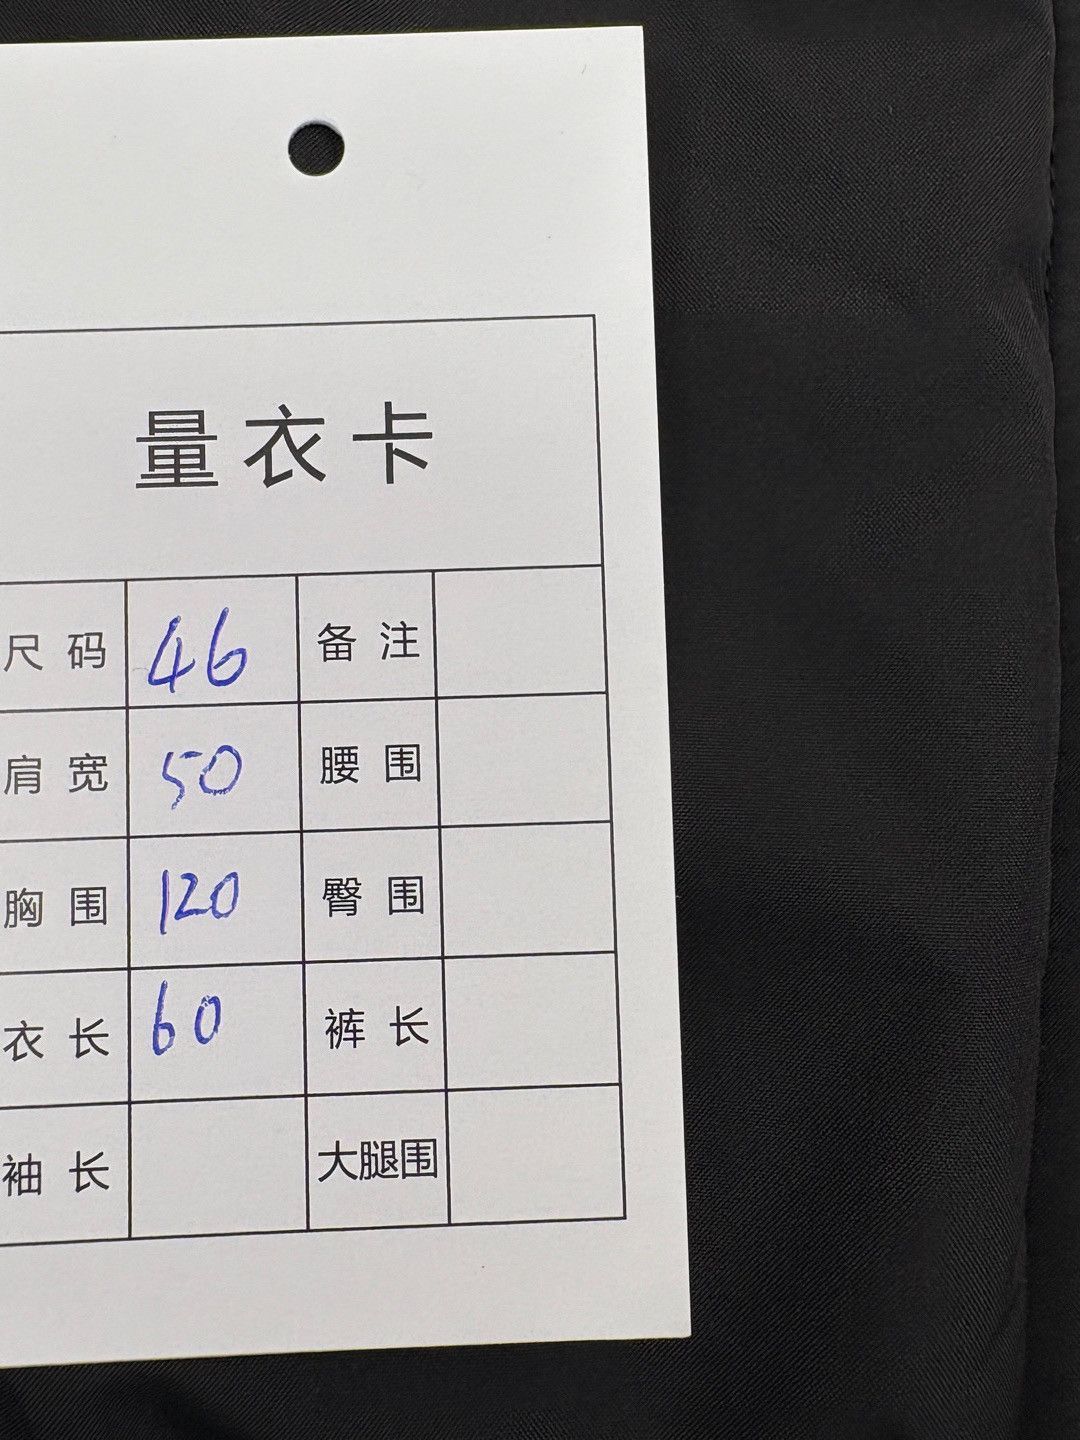 量衣卡
尺码 46 备注
肩宽 50 腰围
胸围 120 臀围
衣长 60 裤长
袖长 大腿围